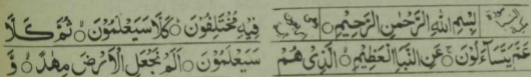 بِسْمِ اللهِ الرَّحْمٰنِ الرَّحِيْمِ
عَمَّ يَتَسَآءَلُوْنَ ۝ عَنِ النَّبَاِ الْعَظِيْمِ ۝ الَّذِيْ هُمْ
فِيْهِ مُخْتَلِفُوْنَ ۝ كَلَّا سَيَعْلَمُوْنَ ۝ ثُمَّ كَلَّا
سَيَعْلَمُوْنَ ۝ اَلَمْ نَجْعَلِ الْاَرْضَ مِهٰدًا ۝ وَّ